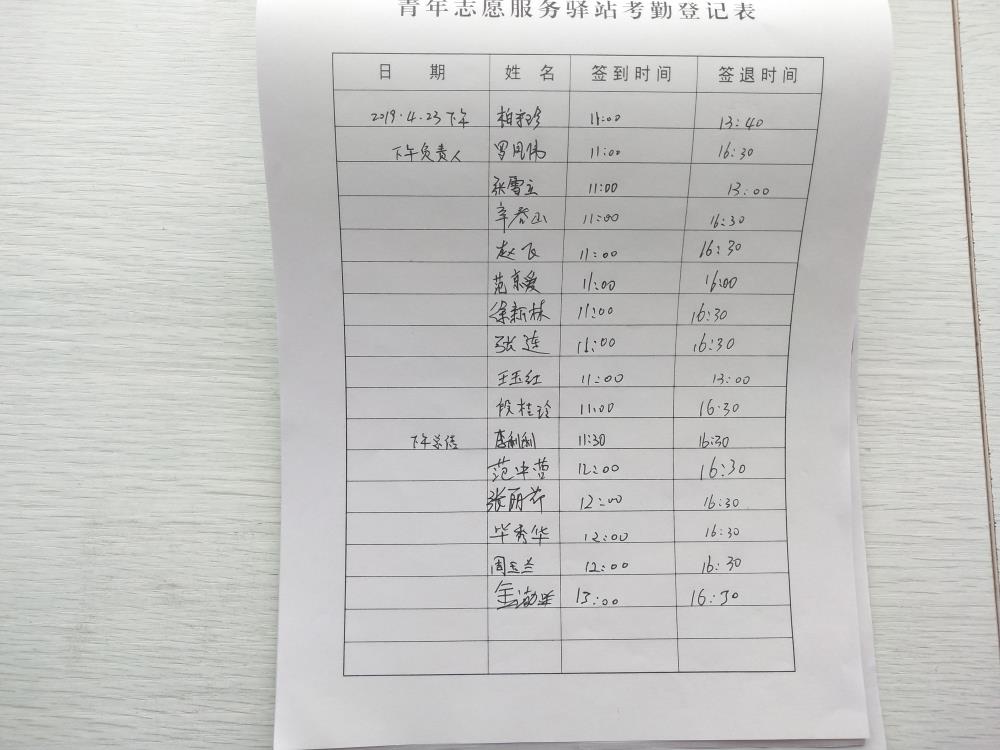 青年志愿服务驿站考勤登记表
日 期 姓 名 签到时间 签退时间
2019.4.23下午 11:00 13:40
下午负责人 11:00 16:30
张雪立 11:00 13:00
辛春山 11:00 16:30
赵飞 11:00 16:30
范京爱 11:00 16:00
徐新林 11:00 16:30
张莲 11:00 16:30
王玉红 11:00 13:00
段桂玲 11:00 16:30
下午总结 李利利 11:30 16:30
12:00 16:30
张丽芹 12:00 16:30
毕秀华 12:00 16:30
周玉兰 12:00 16:30
13:00 16:30